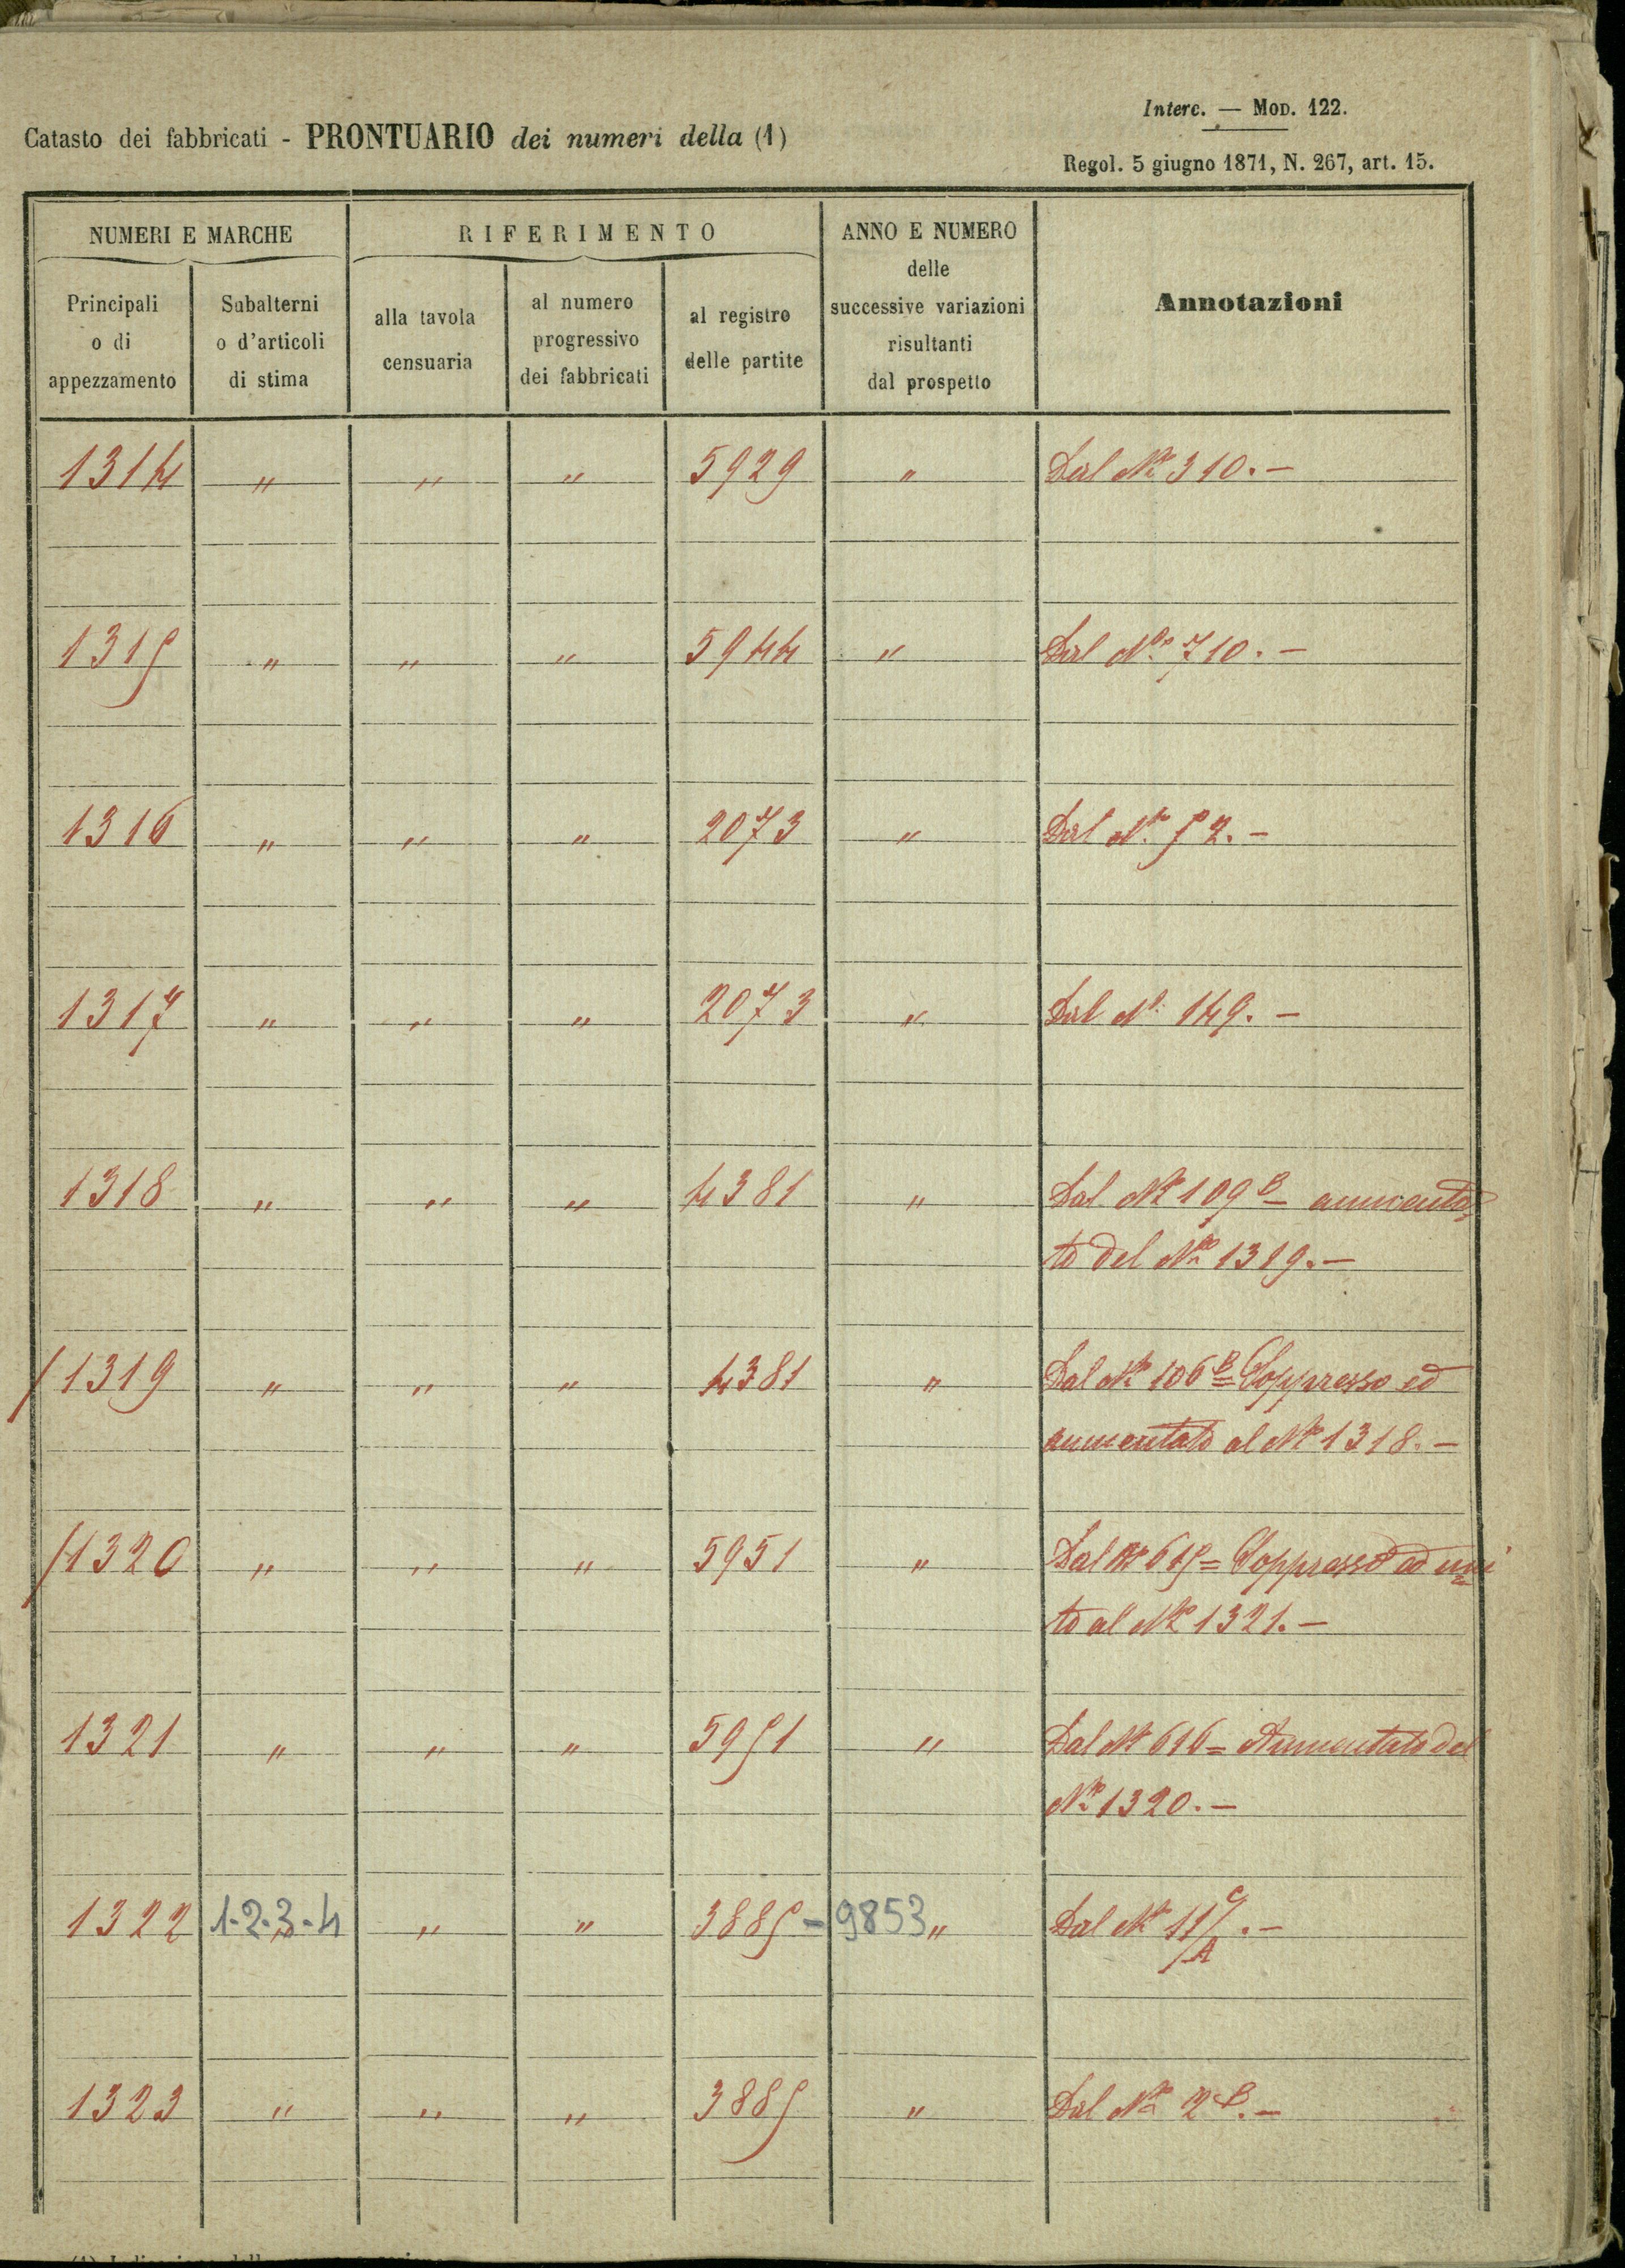 Interc. — Mod. 122.
Catasto dei fabbricati - PRONTUARIO dei numeri della (1)
Regol. 5 giugno 1871, N. 267, art. 15.
NUMERI E MARCHE
RIFERIMENTO
ANNO E NUMERO
delle
successive variazioni
risultanti
dal prospetto
Annotazioni
Principali
o di
appezzamento
Subalterni
o d'articoli
di stima
alla tavola
censuaria
al numero
progressivo
dei fabbricati
al registro
delle partite
1314 " " " 5929 " Dal No 310. —
1315 " " " 5944 " Dal No 710. —
1316 " " " 2073 " Dal No 52. —
1317 " " " 2073 " Dal No 149. —
1318 " " " 4381 " Dal No 109 B — aumenta=
to del No 1319. —
/1319 " " " 4381 " Dal No 106 B = Soppresso ed
aumentato al No 1318. —
/1320 " " " 5951 " Dal No 615 = Soppresso ed uni
to al No 1321. —
1321 " " " 5951 " Dal No 616 = Aumentato del
No 1320. —
1322 1-2-3-4 " " 3885 - 9853 " Dal No 11 C/A. —
1323 " " " 3885 " Dal No 2 B. —